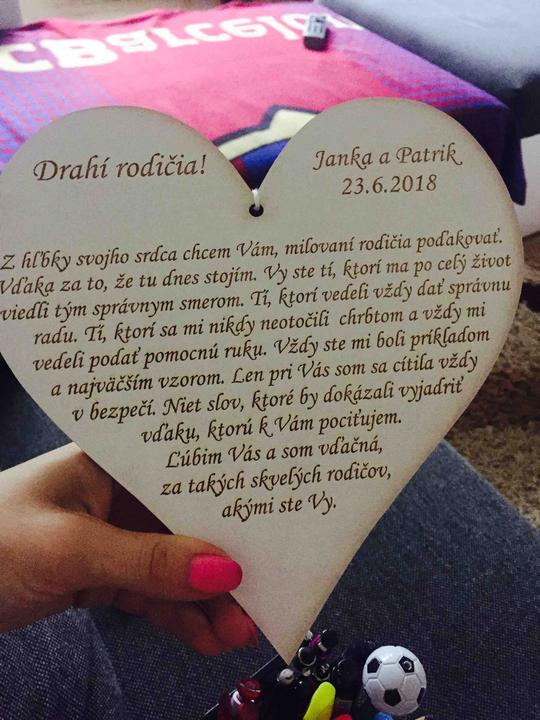 Barcelon
Drahí rodičia!
Janka a Patrik
23.6.2018
Z hĺbky svojho srdca chcem Vám, milovaní rodičia poďakovať.
Vďaka za to, že tu dnes stojím. Vy ste tí, ktorí ma po celý život
viedli tým správnym smerom. Tí, ktorí vedeli vždy dať správnu
radu. Tí, ktorí sa mi nikdy neotočili chrbtom a vždy mi
vedeli podať pomocnú ruku. Vždy ste mi boli príkladom
a najväčším vzorom. Len pri Vás som sa cítila vždy
v bezpečí. Niet slov, ktoré by dokázali vyjadriť
vďaku, ktorú k Vám pociťujem.
Ľúbim Vás a som vďačná,
za takých skvelých rodičov,
akými ste Vy.